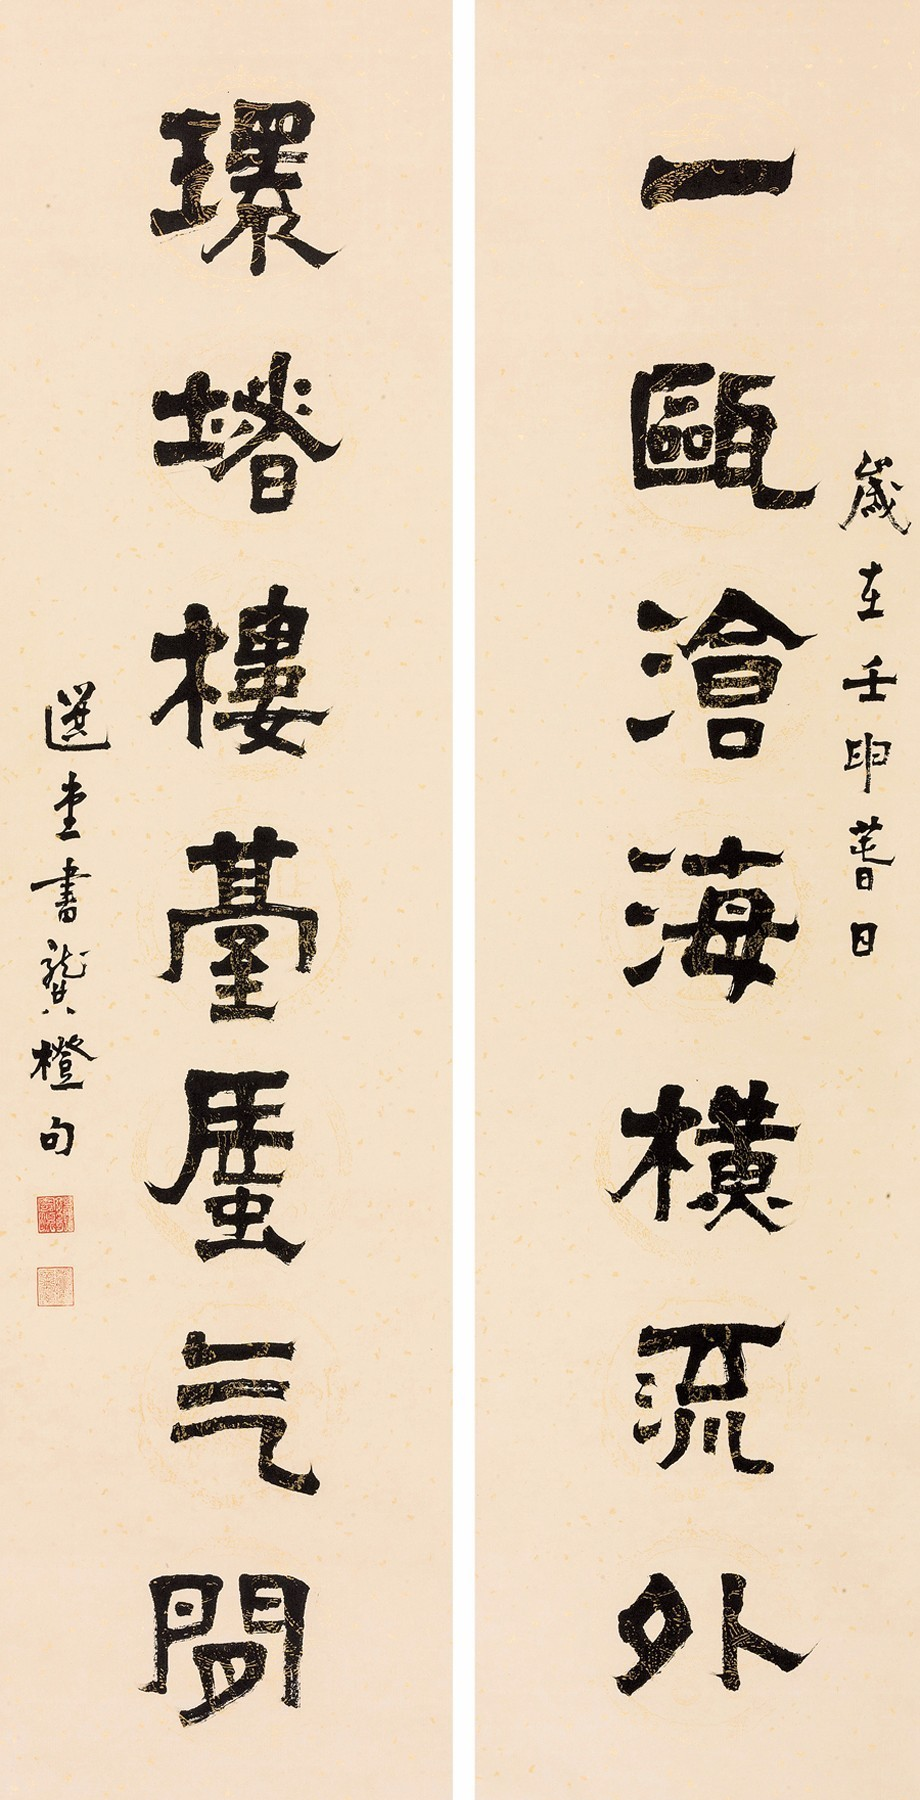 歲在壬申萅日
一甌滄海橫流外
環堵樓臺蜃气閒
選堂書龔橙句